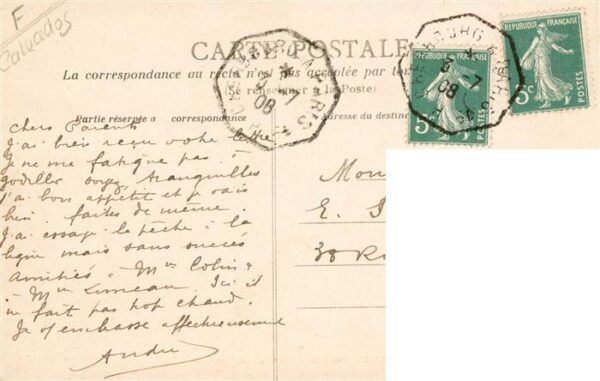 F
Calvados
CARTE POSTALE
La correspondance au recto n'est pas acceptée par tous
(Se renseigner à la Poste)
Partie réservée à la correspondance
Adresse du destin
RÉPUBLIQUE FRANÇAISE
5c
POSTES
RÉPUBLIQUE FRANÇAISE
5c
POSTES
CHERBOURG A PARIS
5-7
08
CHERBOURG A PARIS
5-7
08
Chers Parents
J'ai bien reçu votre lettre
Je ne me fatigue pas à
godiller soyez tranquilles
j'ai bon appétit et je vais
bien. faites de même.
J'ai essayé la pêche à la
ligne mais sans succès
Amitiés à Mme Colin &
à Mme Limeau. Ici il
ne fait pas trop chaud.
Je vs embrasse affectueusement
André
E.
38 R